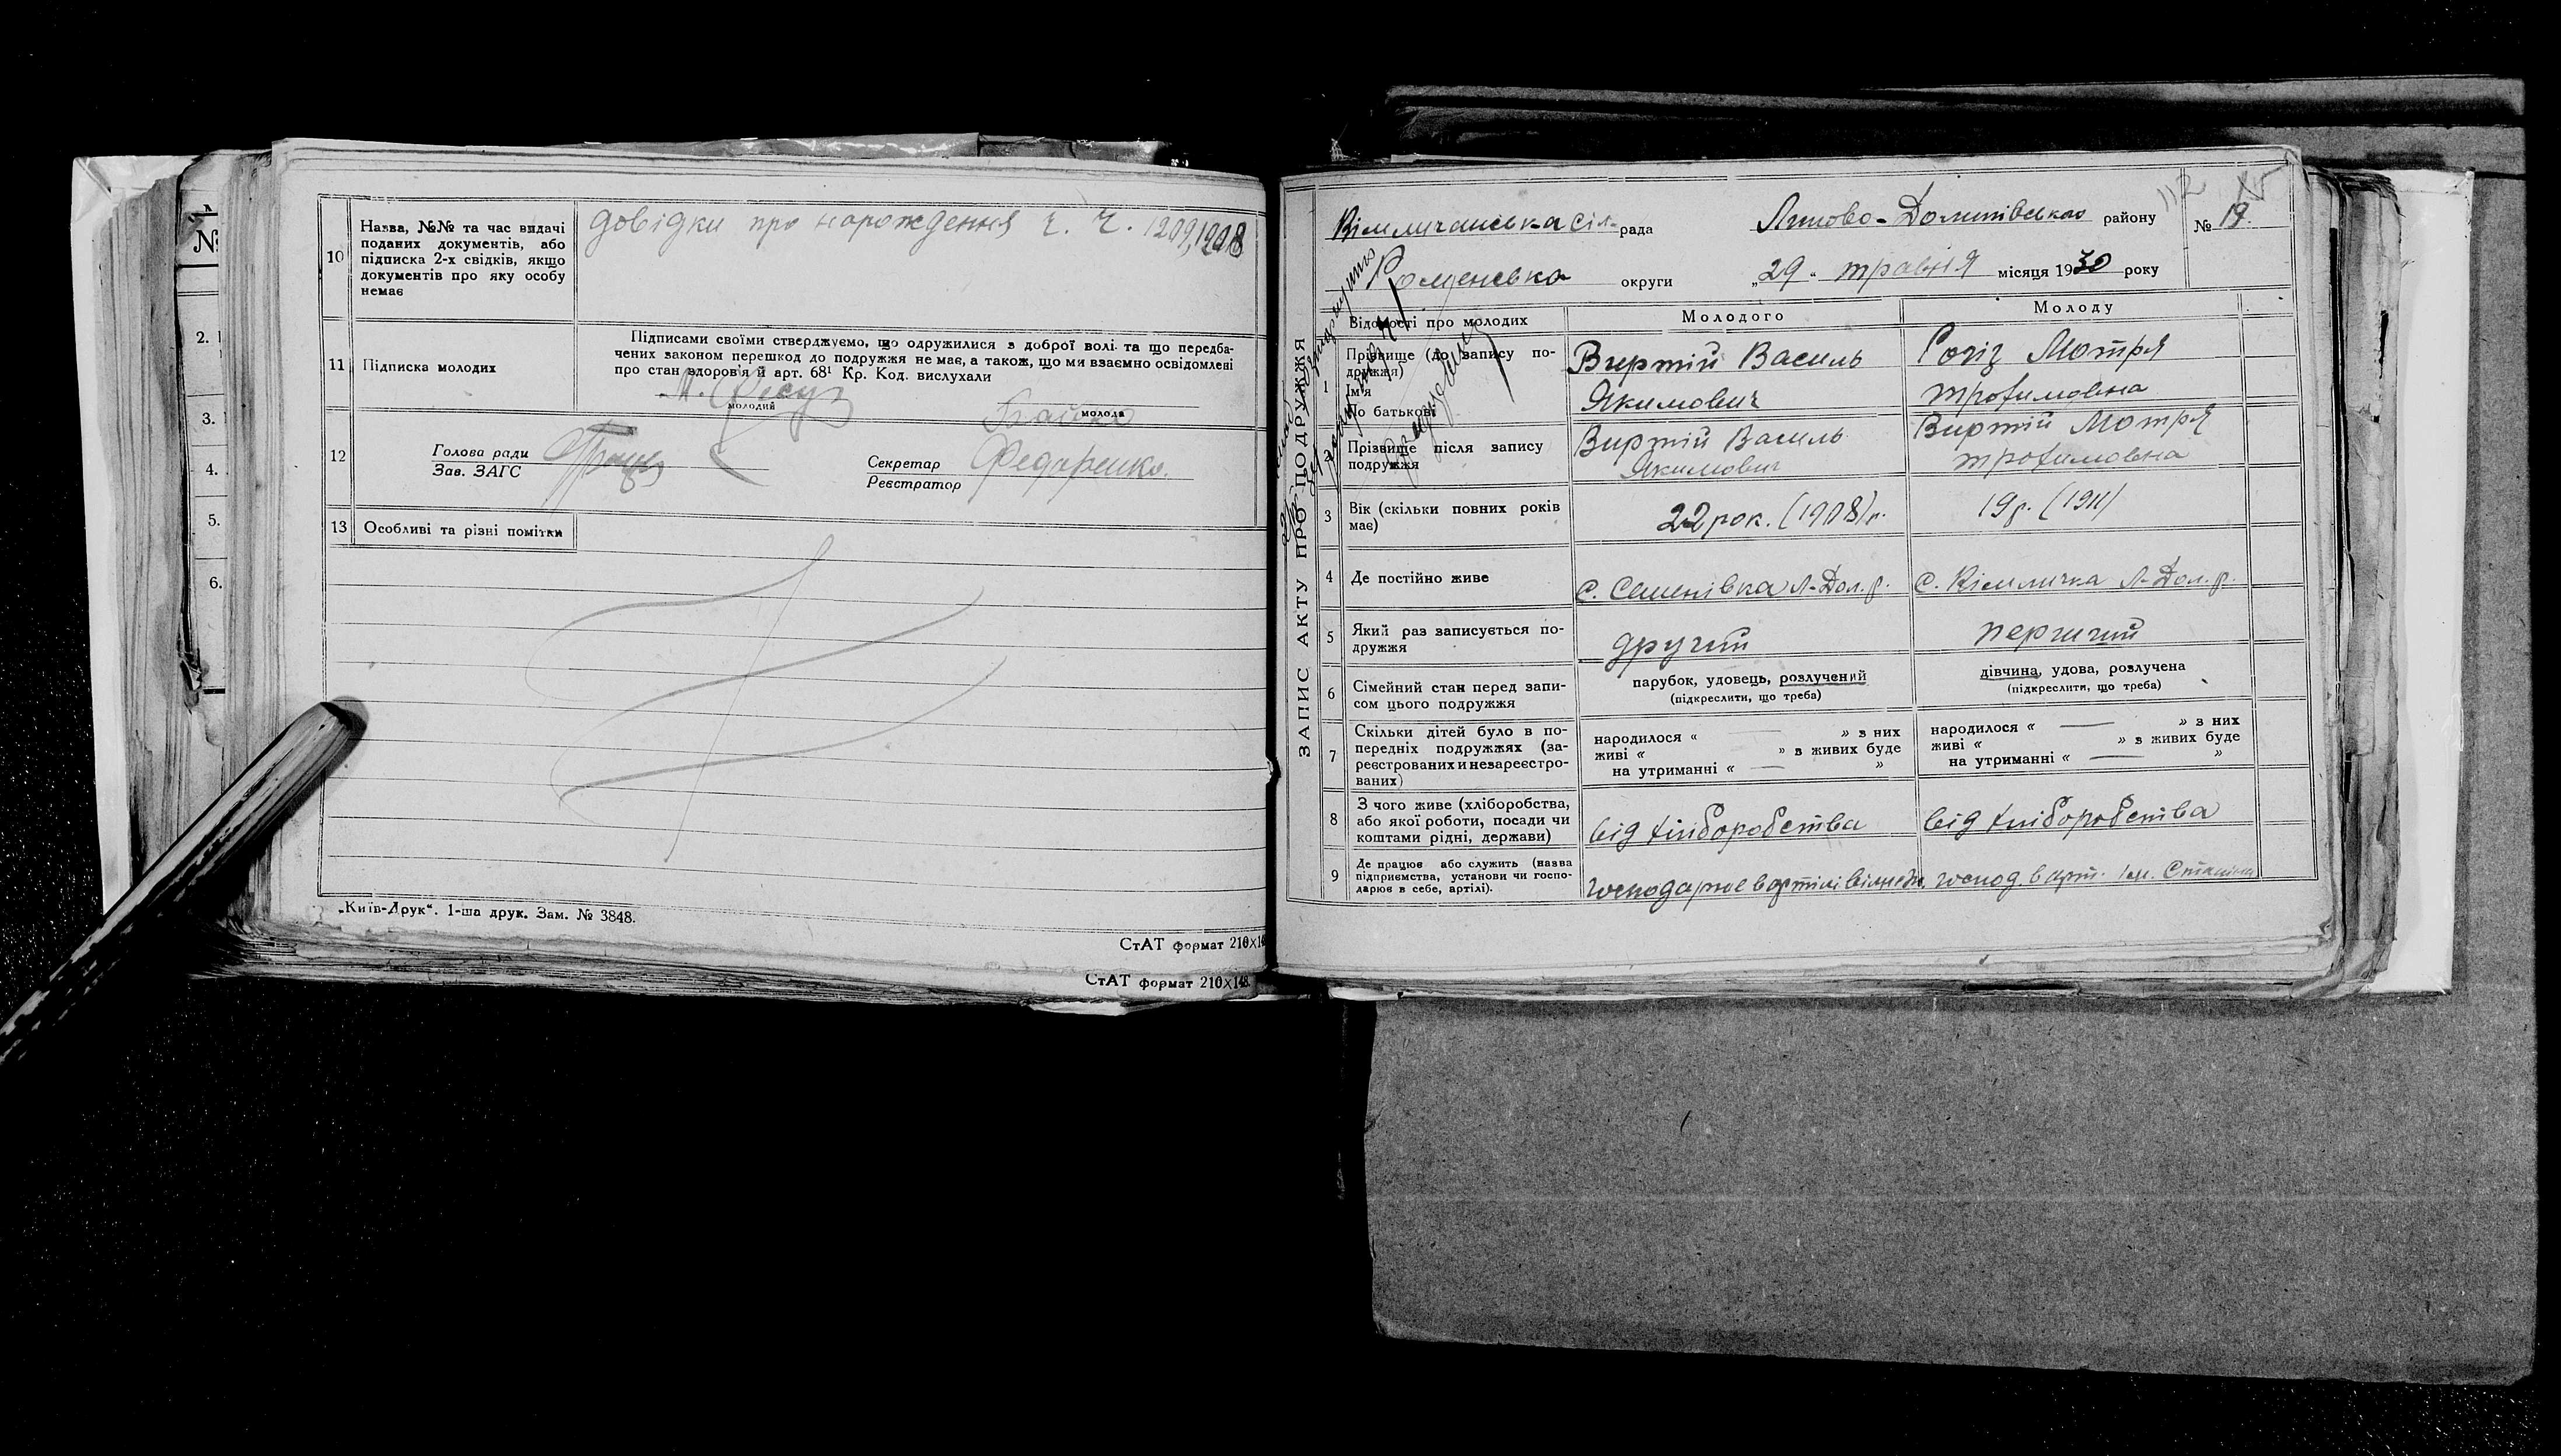 10
Назва, №№ та час видачі
поданих документів, або
підписка 2-х свідків, якщо
документів про яку особу
немає
довідки про народження ч. ч. 1209, 1208
11
Підписка молодих
Підписами своїми стверджуємо, що одружилися з доброї волі та що передба-
чених законом перешкод до подружжя не має, а також, що ми взаємно освідомлені
про стан здоров'я й арт. 68¹ Кр. Код. вислухали
молодий
молода
12
Голова ради
Зав. ЗАГС
Секретар Федоренко.
Реєстратор
13
Особливі та різні помітки
„Київ-Друк“. 1-ша друк. Зам. № 3848.
СтАТ формат 210×14
СтАТ формат 210×148.
№
2.
3.
4.
5.
6.
ЗАПИС АКТУ ПРО ПОДРУЖЖЯ
112
сіл-рада
Липово-Долинівського району
№ 19.
Роменська округи
„29“ травня місяця 1930 року
Відомості про молодих
Молодого
Молоду
1
Прізвище (до запису по-
дружжя)
Ім'я
По батькові
Виртій Василь
Якимович
Мотря
Трохимовна
2
Прізвище після запису
подружжя
Виртій Василь
Якимович
Виртій Мотря
Трохимовна
3
Вік (скільки повних років
має)
22 рок. (1908) р.
19 р. (1911)
4
Де постійно живе
с. Семенівка Л-Дол. р.
с. Л-Дол. р.
5
Який раз записується по-
дружжя
другий
перший
6
Сімейний стан перед запи-
сом цього подружжя
парубок, удовець, розлучений
(підкреслити, що треба)
дівчина, удова, розлучена
(підкреслити, що треба)
7
Скільки дітей було в по-
передніх подружжях (за-
реєстрованих и незареєстро-
ваних)
народилося « — » з них
живі « » з живих буде
на утриманні « — »
народилося « — » з них
живі « » з живих буде
на утриманні « — »
8
З чого живе (хліборобства,
або якої роботи, посади чи
коштами рідні, держави)
від хліборобства
від хліборобства
9
Де працює або служить (назва
підприємства, установи чи госпо-
дарює в себе, артілі).
господарює в артілі
господ. в арт. ім. Сталіна